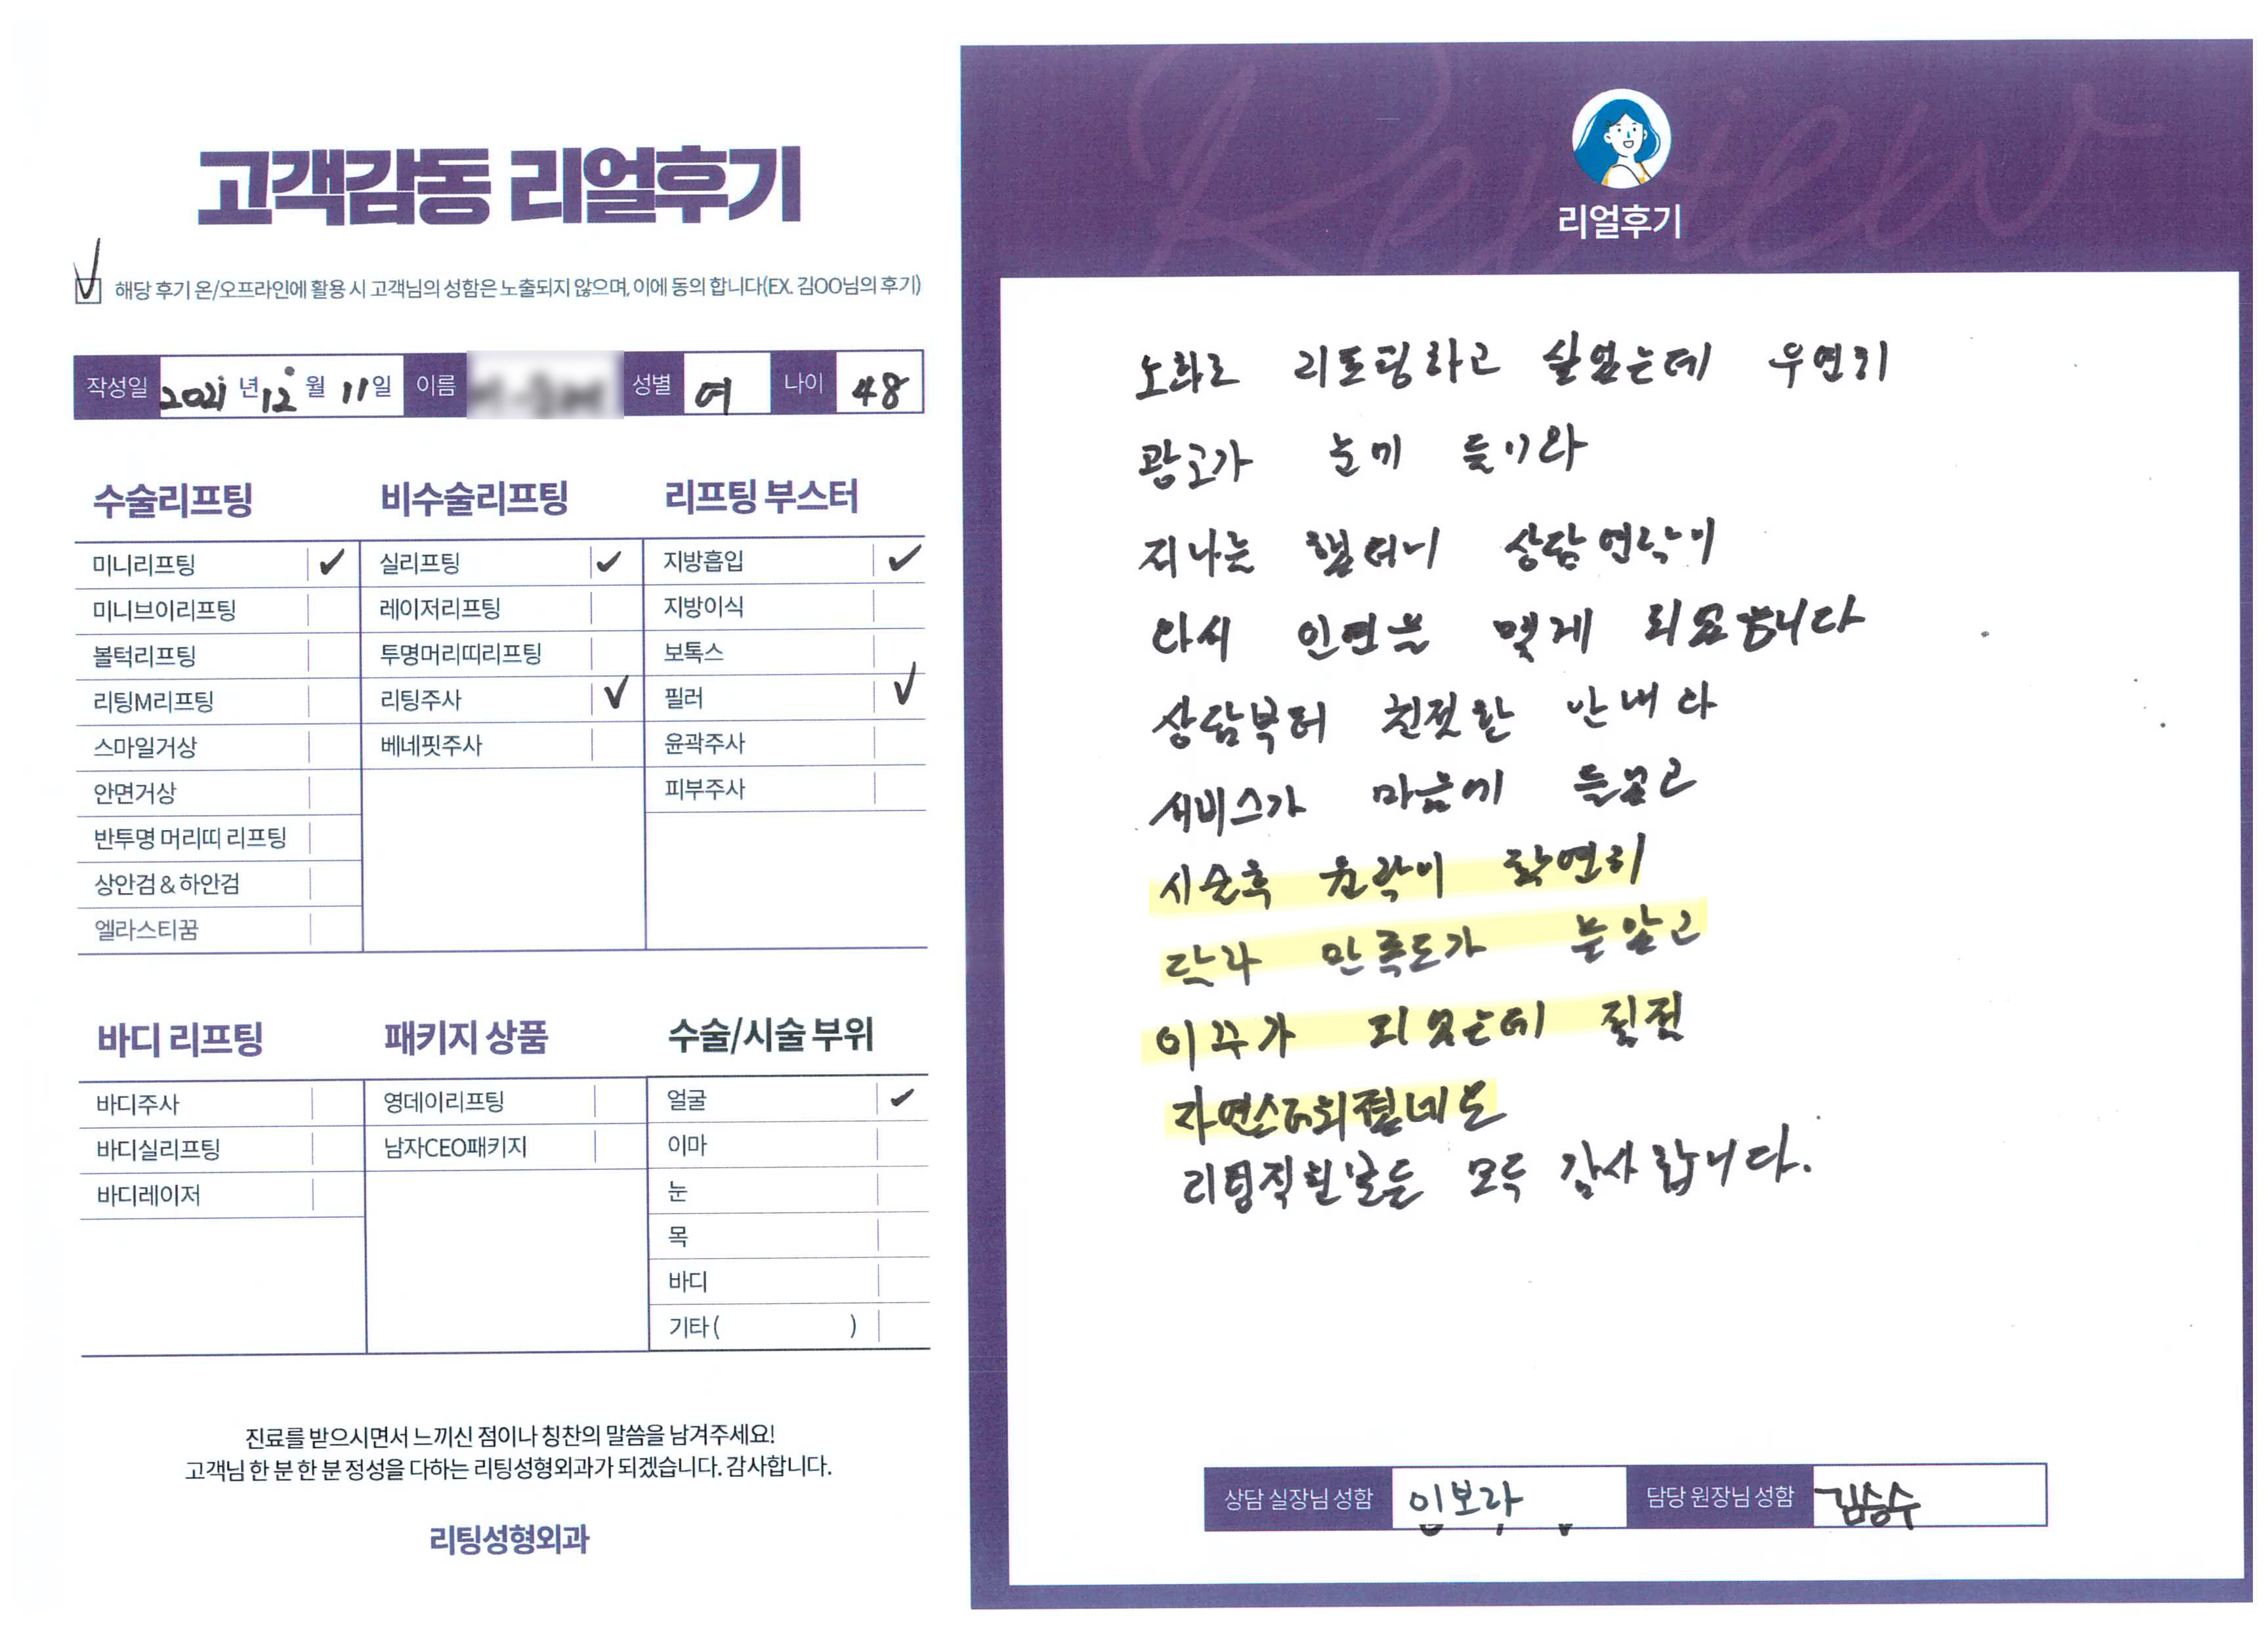 고객감동 리얼후기
해당 후기 온/오프라인에 활용 시 고객님의 성함은 노출되지 않으며, 이에 동의 합니다(EX. 김OO님의 후기)
작성일 2021 년 12 월 11일 이름 성별 여 나이 48
수술리프팅 비수술리프팅 리프팅 부스터
미니리프팅 ✓ 실리프팅 ✓ 지방흡입 ✓
미니브이리프팅 레이저리프팅 지방이식
볼턱리프팅 투명머리띠리프팅 보톡스
리팅M리프팅 리팅주사 ✓ 필러 ✓
스마일거상 베네핏주사 윤곽주사
안면거상 피부주사
반투명 머리띠 리프팅
상안검 & 하안검
엘라스티꿈
바디 리프팅 패키지 상품 수술/시술 부위
바디주사 영데이리프팅 얼굴 ✓
바디실리프팅 남자CEO패키지 이마
바디레이저 눈
목
바디
기타 ( )
진료를 받으시면서 느끼신 점이나 칭찬의 말씀을 남겨주세요!
고객님 한 분 한 분 정성을 다하는 리팅성형외과가 되겠습니다. 감사합니다.
리팅성형외과
Review
리얼후기
노화로 하고 싶었는데 우연히
광고가 눈에 들어와
지나는 상담연락이
다시 인연을 맺게 되었습니다
상담부터 친절한 안내와
서비스가 마음에 들었고
시술후 윤곽이 확연히
달라 만족도가 높았고
이주가 되었는데 점점
리팅직원분들 모두 감사합니다.
상담 실장님 성함 임보라 담당 원장님 성함 김승수